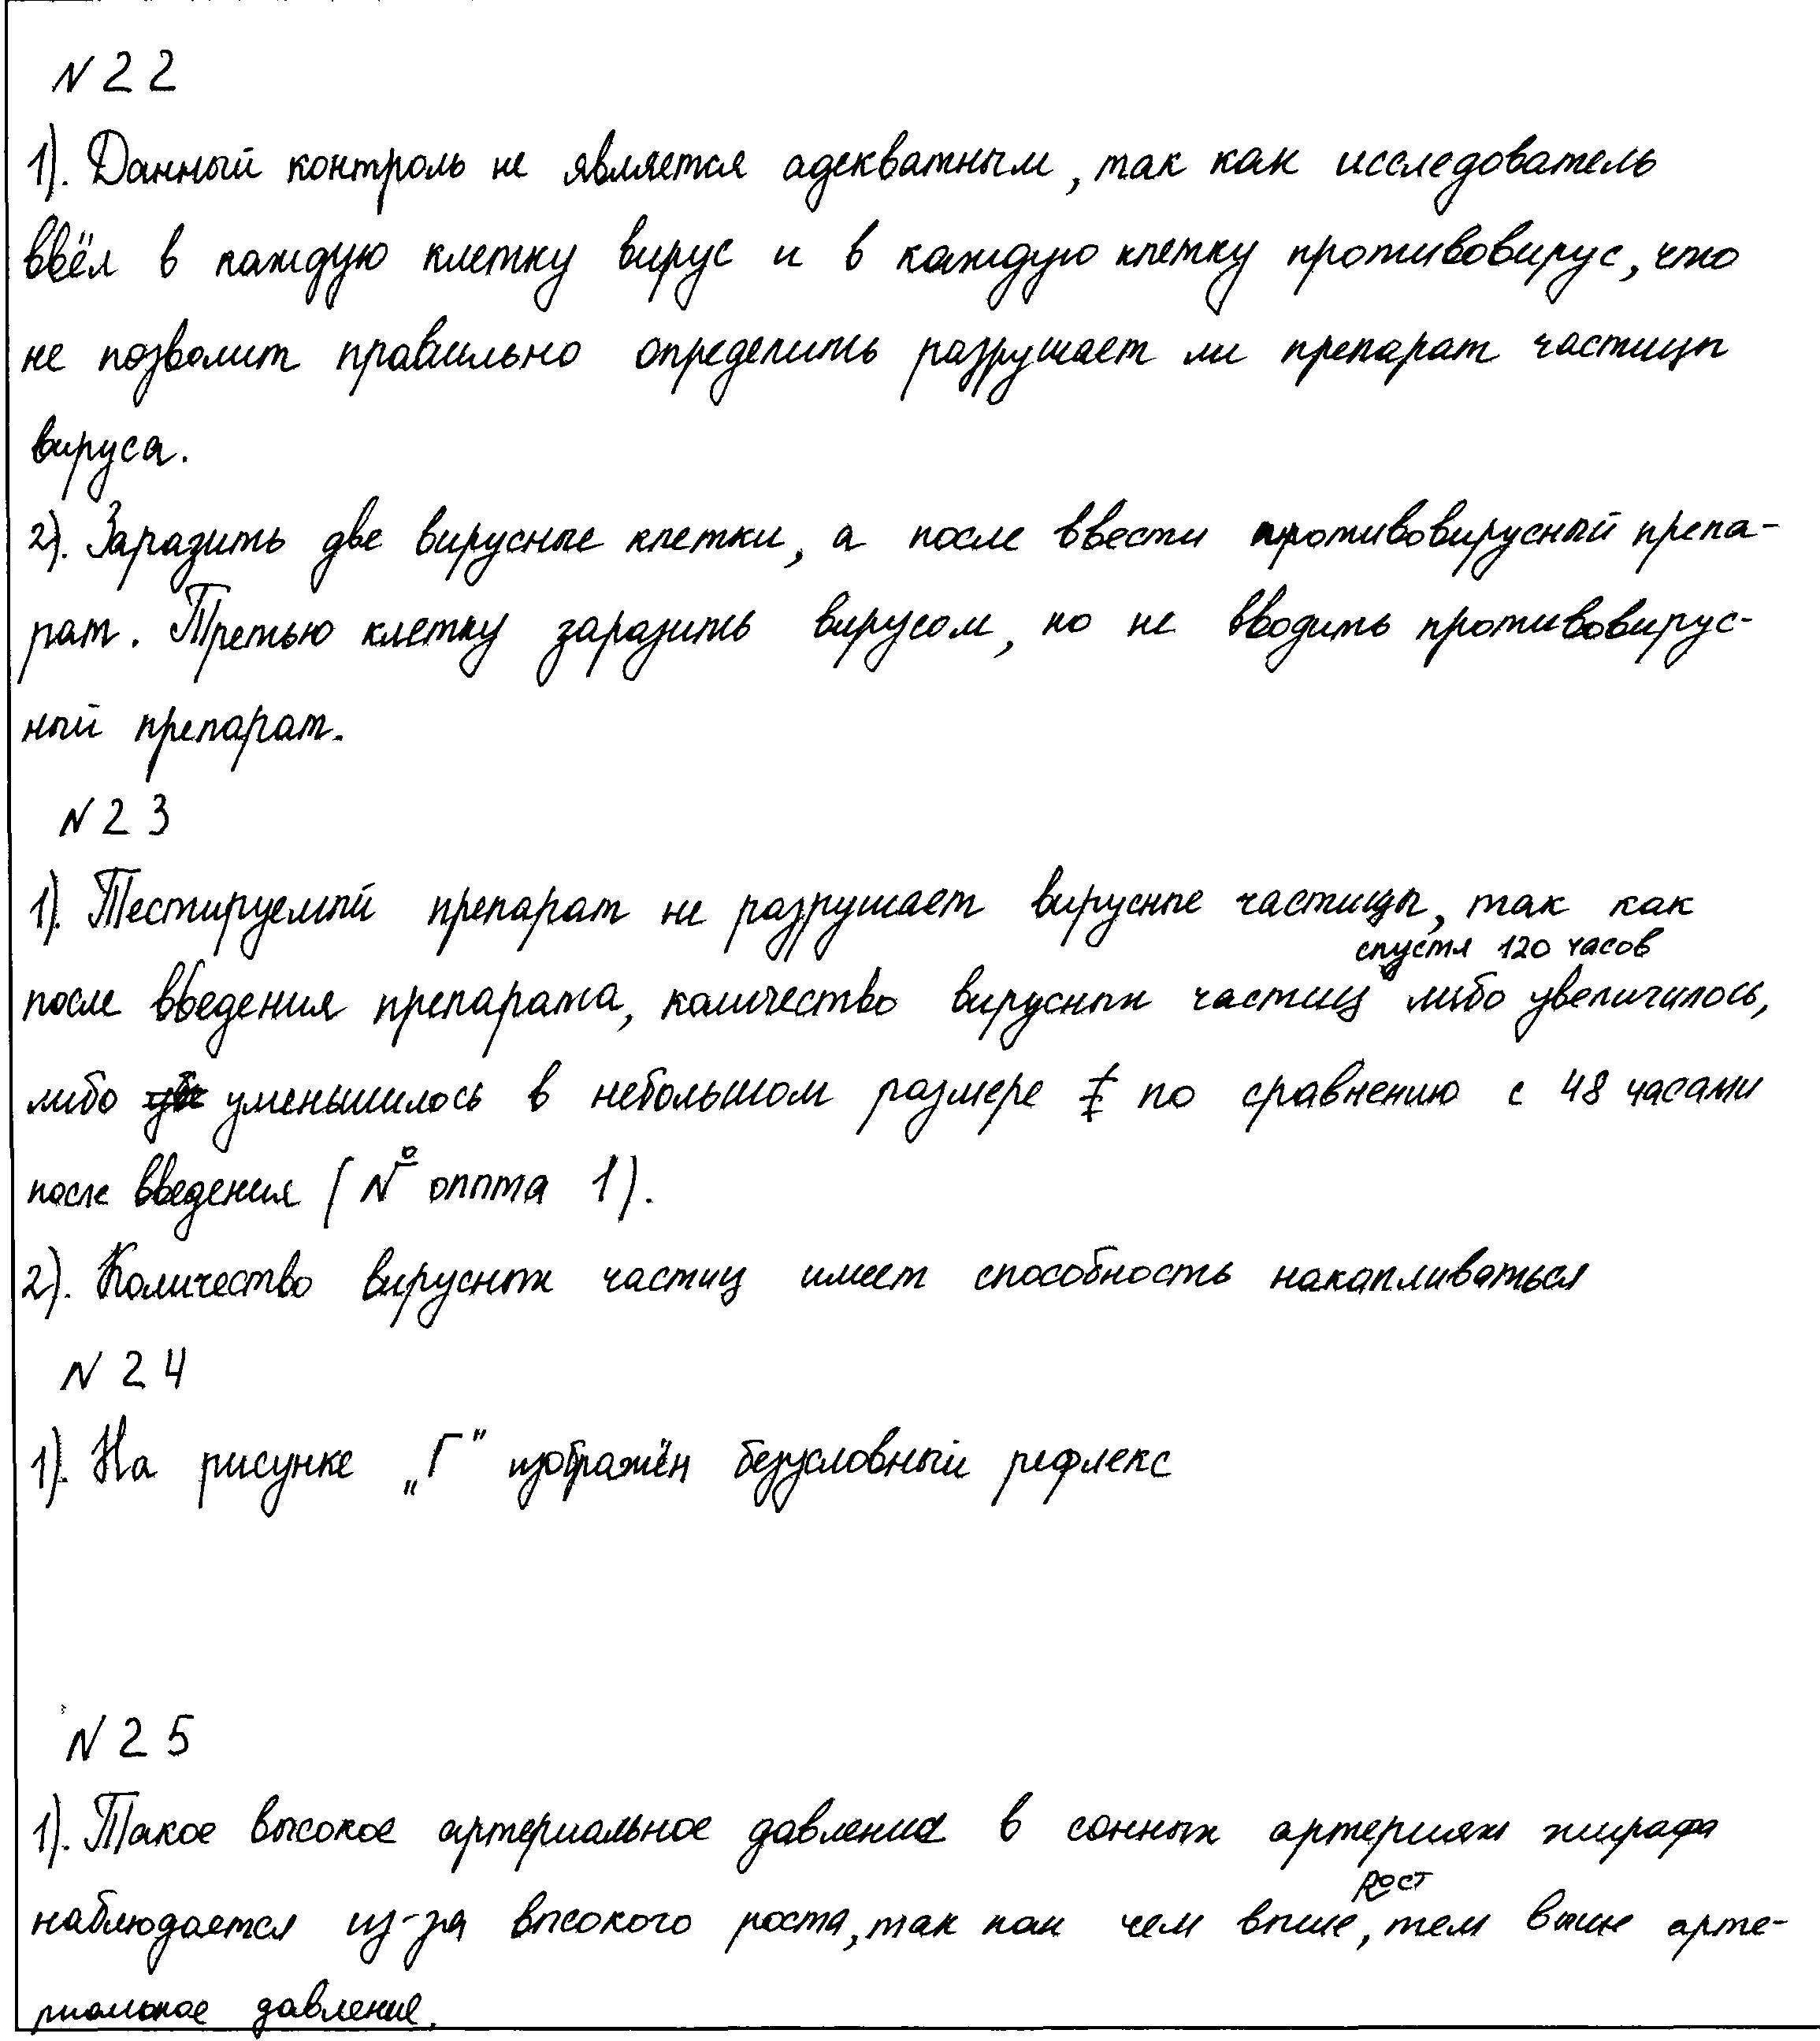 N 22
1). Данный контроль не является адекватным, так как исследователь
ввёл в каждую клетку вирус и в каждую клетку противовирус, что
не позволит правильно определить разрушает ли препарат частицы
вируса.
2). Заразить две вирусные клетки, а после ввести противовирусный препа-
рат. Третью клетку заразить вирусом, но не вводить противовирус-
ный препарат.
N 23
1). Тестируемый препарат не разрушает вирусные частицы, так как
спустя 120 часов
после введения препарата, количество вирусных частиц либо увеличилось,
либо уменьшилось в небольшом размере по сравнению с 48 часами
после введения (№ опыта 1).
2). Количество вирусных частиц имеет способность накапливаться
N 24
1). На рисунке „Г" изображён безусловный рефлекс
N 25
1). Такое высокое артериальное давление в сонных артериях жирафа
рост
наблюдается из-за высокого роста, так как чем выше, тем выше арте-
риальное давление.